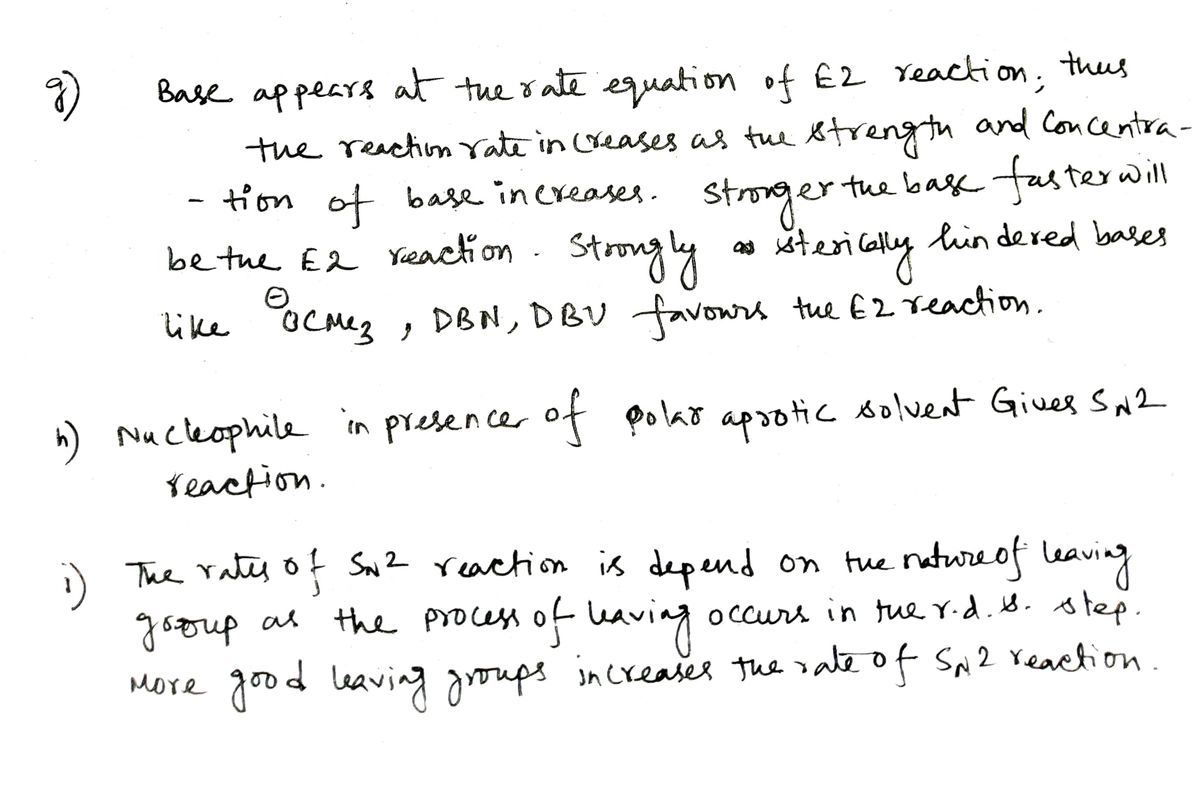 g) Base appears at the rate equation of E2 reaction, thus
the reaction rate increases as the strength and Concentra-
- tion of base increases. Stronger the base faster will
be the E2 reaction. Strongly sterically hindered bases
like ⊖OCMe3, DBN, DBU favours the E2 reaction.
h) Nucleophile in presence of polar aprotic solvent Gives SN2
reaction.
i) The rates of SN2 reaction is depend on the nature of leaving
group as the process of leaving occurs in the r.d.s. step.
More good leaving groups increases the rate of SN2 reaction.